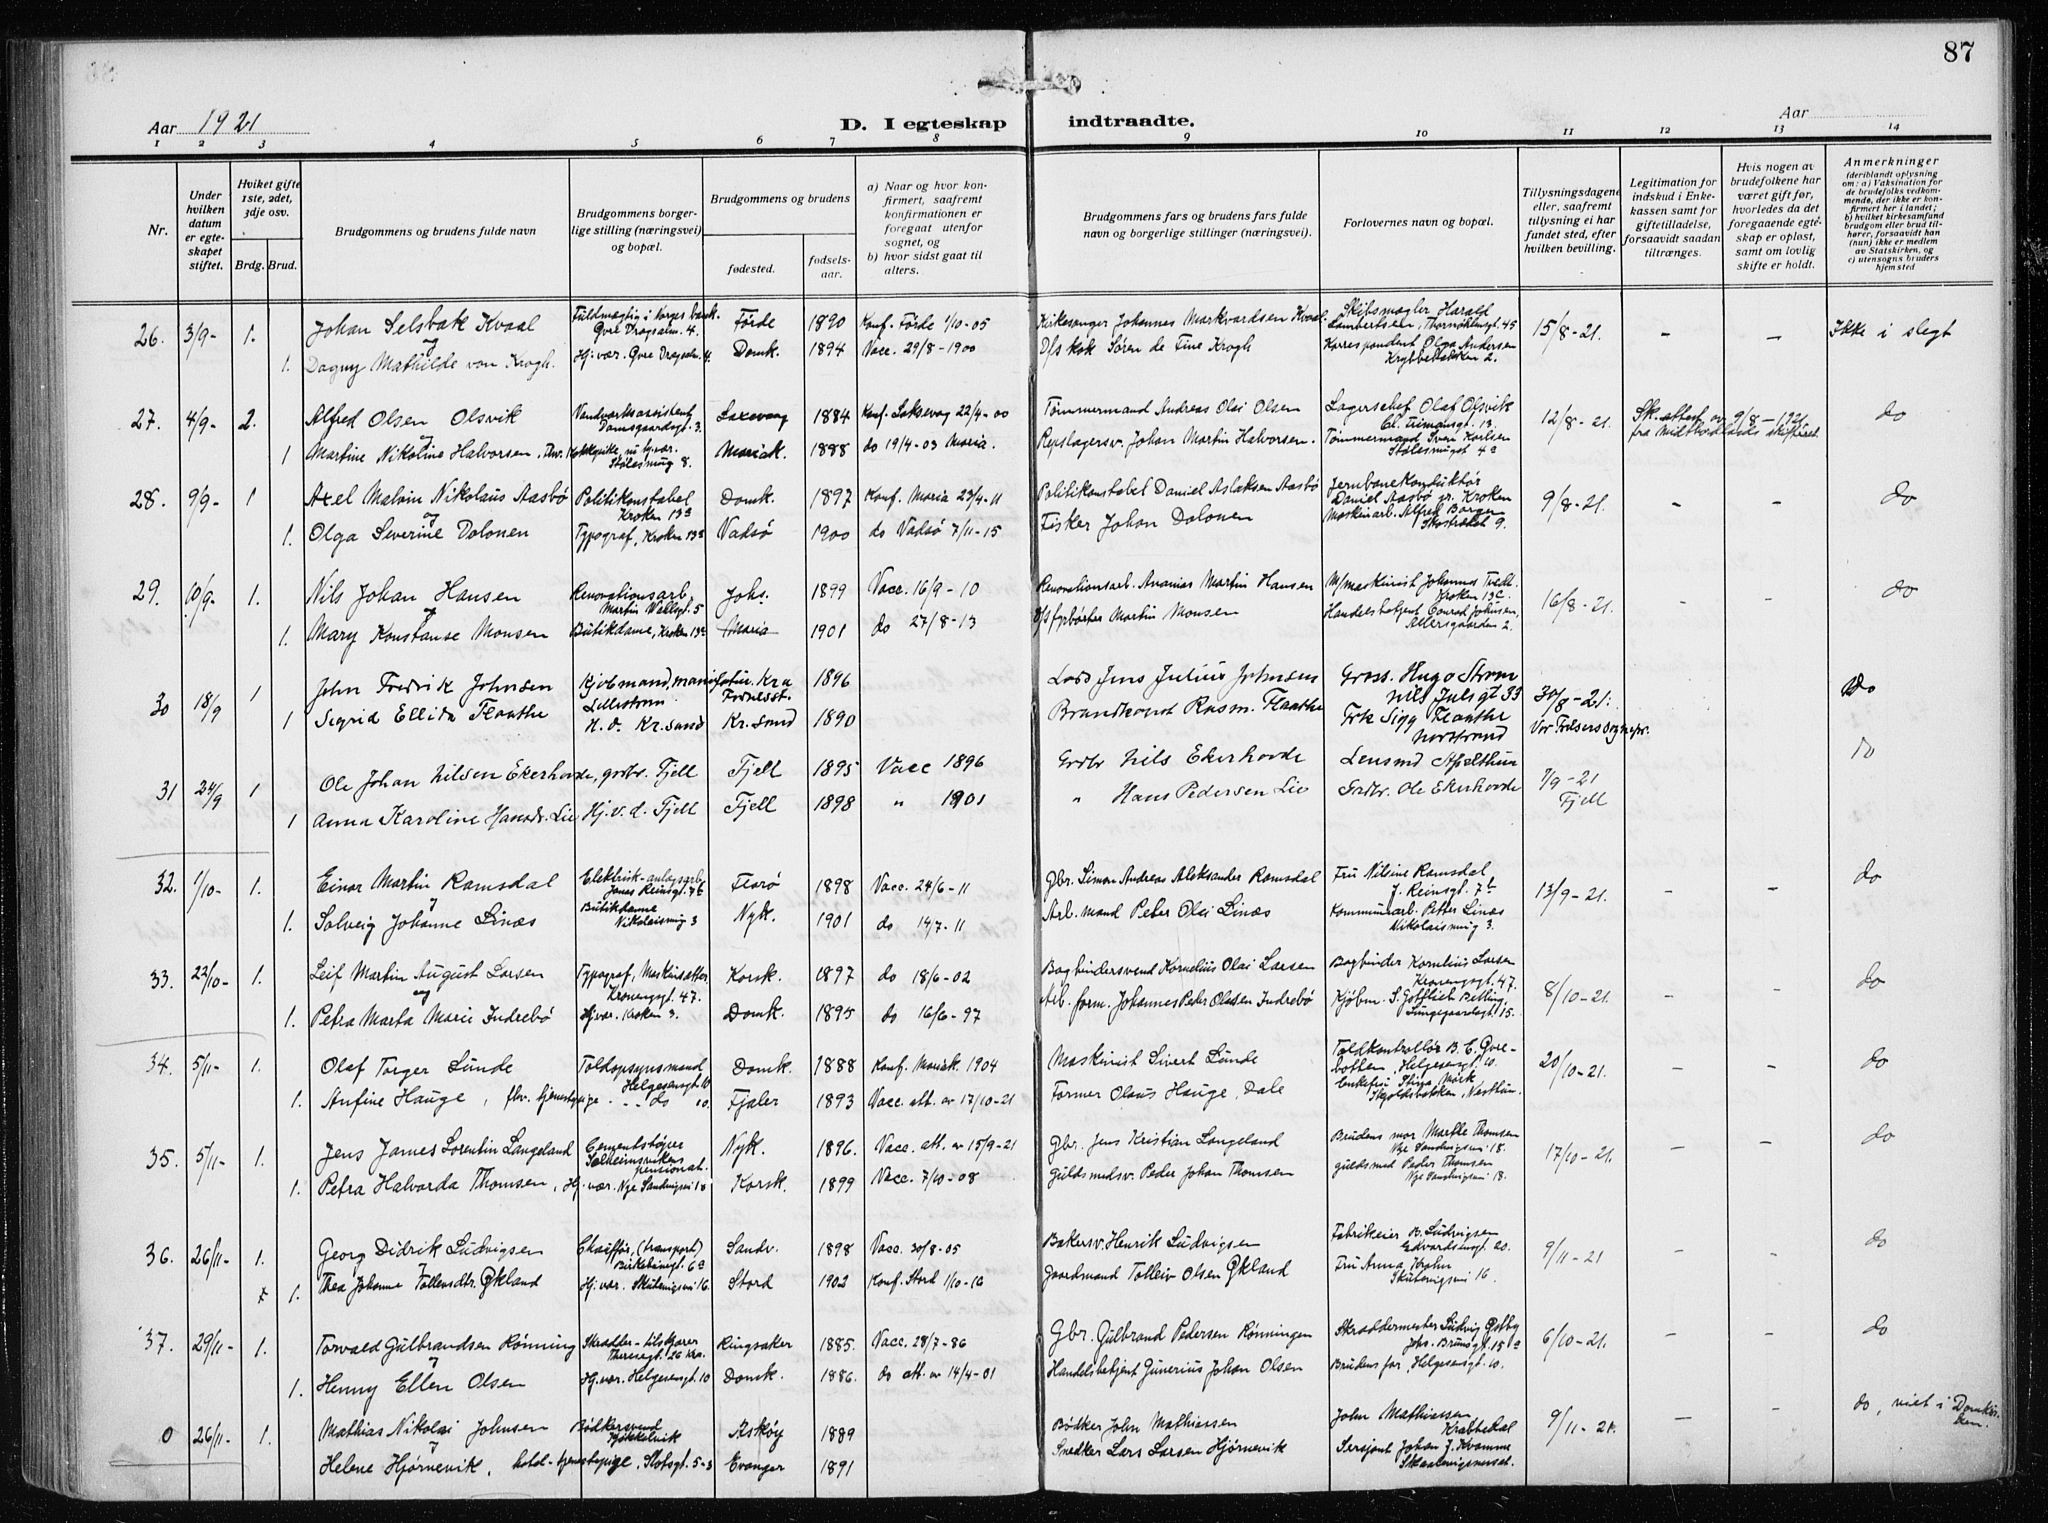 87
Aar 1921
D. I egteskap indtraadte.
Aar
1 2 3 4 5 6 7 8 9 10 11 12 13 14
Nr.
Under hvilken datum er egteskapet stiftet.
Hviket gifte 1ste, 2det, 3dje osv.
Brdg. Brud.
Brudgommens og brudens fulde navn
Brudgommens borgerlige stilling (næringsvei) og bopæl.
Brudgommens og brudens
fødested.
fødselsaar.
a) Naar og hvor konfirmert, saafremt konfirmationen er foregaat utenfor sognet, og
b) hvor sidst gaat til alters.
Brudgommens fars og brudens fars fulde navn og borgerlige stillinger (næringsvei).
Forlovernes navn og bopæl.
Tillysningsdagene eller, saafremt tillysning ei har fundet sted, efter hvilken bevilling.
Legitimation for indskud i Enkekassen samt for giftetilladelse, forsaavidt saadan tiltrænges.
Hvis nogen av brudefolkene har været gift før, hvorledes da det foregaaende egteskap er opløst, samt om lovlig skifte er holdt.
Anmerkninger (deriblandt oplysning om: a) Vaksination for de brudefolks vedkommende, der ikke er konfirmert her i landet; b) hvilket kirkesamfund brudgom eller brud tilhører, forsaavidt han (hun) ikke er medlem av Statskirken, og c) utensogns bruders hjemsted
26. 3/9- 1. Johan Selsbak Kvaal Fuldmægtig i Norges bank. Øvre Dragsalm. 4. Førde 1890 Konf. Førde 1/10-05 Kirkesanger Johannes Markvardsen Kvaal Skibsmægler Harald Lambertsen, 45 15/8-21. - - Ikke i slegt
og
1. Dagny Mathilde von Krogh. Hj. vær. Øvre Dragsalm. 4. Domk. 1894 Vacc. 29/8-1900 D/s kok Søren de Fine Krogh Korrespondent Olga Andersen 2.
27. 4/9- 2. Alfred Olsen Olsvik Vandverksassistent Damsgaardsgt. 3. Laxevaag 1884 Konf. Laksevag 22/4-00 Tømmermand Andreas Olai Olsen Lagerschef Olaf Olsvik 13. 12/8-21. Sk. attest av 9/8-1921 fra Midthordlands skifteret. do
og
1 Martine Nikoline Halvorsen, nu hj.vær. Stølesmug 8. Mariak. 1888 do 19/4-03 Maria. Repslagersv. Johan Martin Halvorsen. Tømmermand Karlsen 4a
28. 9/9- 1 Axel Malvin Nikolaus Aasbø Politikonstabel Kroken 13a Domk. 1897 Konf. Maria 23/4-11 Politikonstabel Daniel Aslaksen Aasbø Jernbanekonduktør Daniel Aasbø Kroken 9/8-21. - - do
og
1. Olga Severine Dolonen Typograf, Kroken 13a Vadsø 1900 do Vadsø 7/11-15 Fisker Johan Dolonen Maskinarb. Alfred Borgen Skostrædet 9.
29. 10/9- 1. Nils Johan Hansen Renovationsarb, Martin Vahlsgt. 5 Johs. 1899 Vacc. 16/9-10 Renovationsarb. Ananias Martin Hansen M/maskinist Johannes Tvedt. Kroken 13c. 16/8-21. - - do
og
1. Mary Konstanse Monsen Butikdame, Kroken 13c Maria 1901 do 27/8-13 D/s fyrbøter Martin Monsen Handelsbetjent Conrad Johnsen, 2.
30 18/9 1 John Fredrik Johnsen Kjøbmand, Lillestrøm. Kra 1896 Lods Jens Julius Johnsen Gross. Hugo Strøm Nils Julsgt 33 30/8-21: do
1 Sigrid Ellida Flaathe H. d. Kr.sand Kr.sand 1890 Brandkonst Rasm. Flaathe Frk Sigg Flaathe Nordstrand Vor Frelsers sognepr.
31 24/9 1 Ole Johan Nilsen Ekerhovde, grdbr. Fjell Fjell 1895 Vacc 1896 Grdbr Nils Ekerhovde Lensmd Apelthun 7/9-21 Fjell do
1 Anna Karoline Hansdr. Lie Hj. v. d. Fjell Fjell 1898 " 1901 " Hans Pedersen Lie Grdbr. Ole Ekerhovde
32. 1/10- 1. Einar Martin Ramsdal Elektrisk-anlægsarb. Jonas Reinsgt. 7b Florø 1898 Vacc. 24/6-11 Gbr. Simon Andreas Aleksander Ramsdal Fru Nilsine Ramsdal J. Reinsgt. 7b 13/9-21. - - do
og
1. Solveig Johanne Linæs Butikdame Nikolaismug 3 Nyk. 1901 do 14/7-11 Arb.mand Peter Olai Linæs Kommunearb. Petter Linæs Nikolaismug 3.
33. 22/10- 1. Leif Martin August Larsen Typograf, Maskinsætter Kroneng​sgt. 47. Korsk. 1897 do 18/6-02 Bogbindersvend Kornelius Olai Larsen Bogbinder Kornelius Larsen 47. 8/10-21. - - do
og
1. Petra Marta Marie Indrebø Hj.vær. Kroken 3. Domk. 1895 do 16/6-97 Arb. form. Johannes Peter Olasen Indrebø Kjøbm. S. Gottlieb 15.
34. 5/11- 1. Olaf Torger Lunde Toldopsynsmand Helgesensgt. 10 Domk. 1888 Konf. Mariak. 1904 Maskinist Sivert Lunde Toldkontrollør B. C. Øvrebotten, Helgesensgt. 10. 20/10-21. - - do
1. Anfine Hauge, fhv. tjenestepige -.- do 10. Fjaler 1893 Vacc. att. av 17/10-21 Former Olaus Hauge, Dale Enkefru Stina Mørk Skjoldsbakken, Nesttun.
35. 5/11- 1. Jens James Sorentin Langeland Cementstøper Solheimsvikens pensionat. Nyk. 1896. Vacc. att. av 15/9-21 Gbr. Jens Kristian Langeland Brudens mor Marthe Thomsen Nye Sandvigsvei 18. 17/10-21. - - do
1. Petra Halvarda Thomsen, Hj. vær. Nye Sandvigsvei 18 Korsk. 1899 Vacc. 7/10-08 Guldsmedsv. Peder Johan Thomsen Guldsmed Peder Thomsen Nye Sandvigsvei 18.
36. 26/11- 1. Georg Didrik Ludvigsen Chauffør, (transport) Birkebeinsgt. 6a Sandv. 1898 Vacc. 30/8-05 Bakersv. Henrik Ludvigsen Fabrikeier B. Ludvigsen Edvardsensgt. 20. 9/11-21 - - do
x 1. Thea Johanne Tollevsdtr. Økland Hj. vær. Skutevigsvei 16 Stord 1902 Konf. Stord 1/10-16 Gaardmand Tolleiv Olsen Økland Fru Anna Skutevigsvei 16.
37. 29/11- 1. Torvald Gulbrandsen Rønning Skrædder-tilskjærer Theresegt. 26 Kra. Ringsaker 1885. Vacc. 28/7-86 Gbr. Gulbrand Pedersen Rønningen Skræddermester Ludvig Østby Johs. Brunsgt. 15a 6/10-21. - - do
og
1. Henny Ellen Olsen Hj. vær. Helgesensgt. 10 Domk. 1886. do att. av 14/4-01 Handelsbetjent Gunerius Johan Olsen Brudens far, Helgesensgt. 10.
0 26/11- 1. Mathias Nikolai Johnsen Bødkersvend Askøy 1889 Bødker John Mathiassen John Mathiassen Krabbedal 9/11-21. - - do, viet i Domkirken.
og
Helene Hjørnevik, hotel-tjenestepige, Slotsgt. 5-3 Evanger 1891 Snedker Lars Larsen Hjørnevik Sersjant Johan J. Kvamme